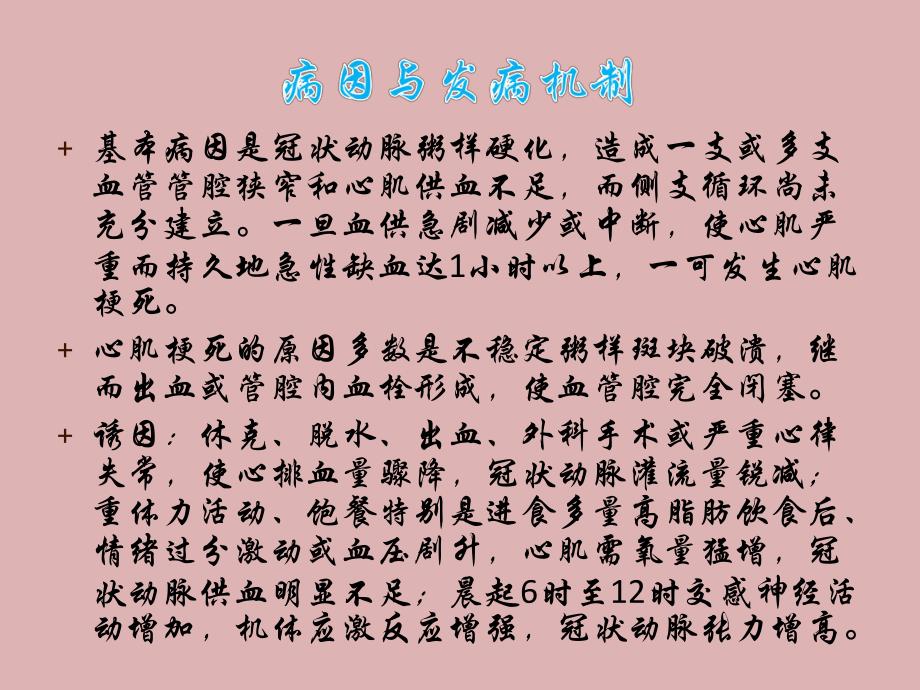 病因与发病机制
+ 基本病因是冠状动脉粥样硬化，造成一支或多支
血管管腔狭窄和心肌供血不足，而侧支循环尚未
充分建立。一旦血供急剧减少或中断，使心肌严
重而持久地急性缺血达1小时以上，一可发生心肌
梗死。
+ 心肌梗死的原因多数是不稳定粥样斑块破溃，继
而出血或管腔内血栓形成，使血管腔完全闭塞。
+ 诱因：休克、脱水、出血、外科手术或严重心律
失常，使心排血量骤降，冠状动脉灌流量锐减；
重体力活动、饱餐特别是进食多量高脂肪饮食后、
情绪过分激动或血压剧升，心肌需氧量猛增，冠
状动脉供血明显不足；晨起6时至12时交感神经活
动增加，机体应激反应增强，冠状动脉张力增高。